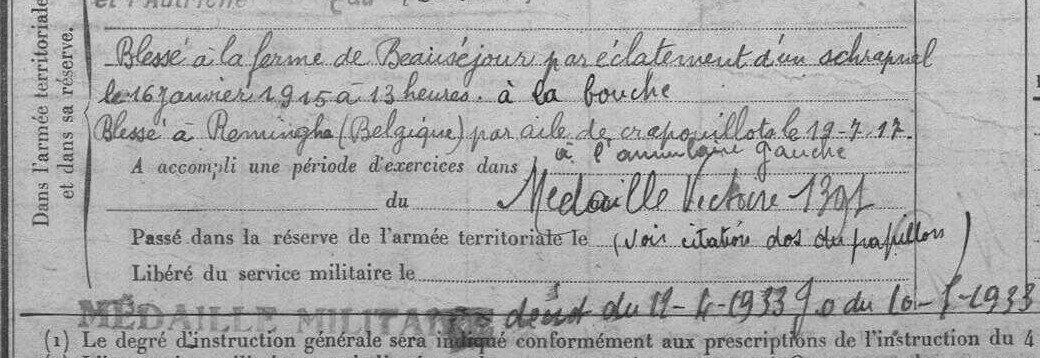 et l'Autriche
Blessé à la ferme de Beauséjour par éclatement d'un schrapnel
le 16 janvier 1915 à 13 heures. à la bouche
Blessé à Reminghe (Belgique) par aile de crapouillots le 19-7-17.
à l'annulaire gauche
A accompli une période d'exercices dans
du Médaille Victoire
Passé dans la réserve de l'armée territoriale le (Voir citation dos du papillon)
Libéré du service militaire le
MÉDAILLE MILITAIRE décret du 11-4-1933 J.O du 10-5-1933
(1) Le degré d'instruction générale sera indiqué conformément aux prescriptions de l'instruction du 4
Dans l'armée territoriale
et dans sa réserve.